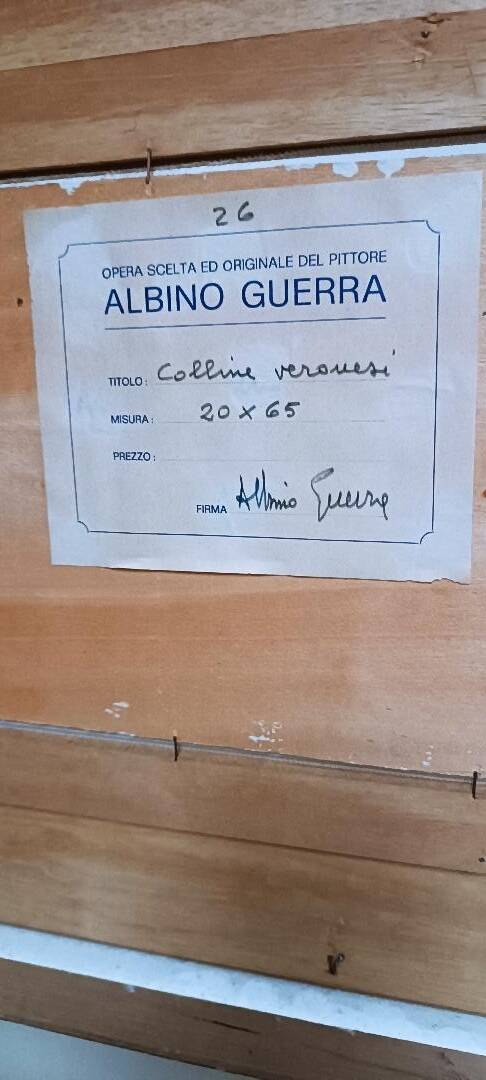 26
OPERA SCELTA ED ORIGINALE DEL PITTORE
ALBINO GUERRA
TITOLO: Colline veronesi
MISURA: 20 x 65
PREZZO:
FIRMA Albino Guerra